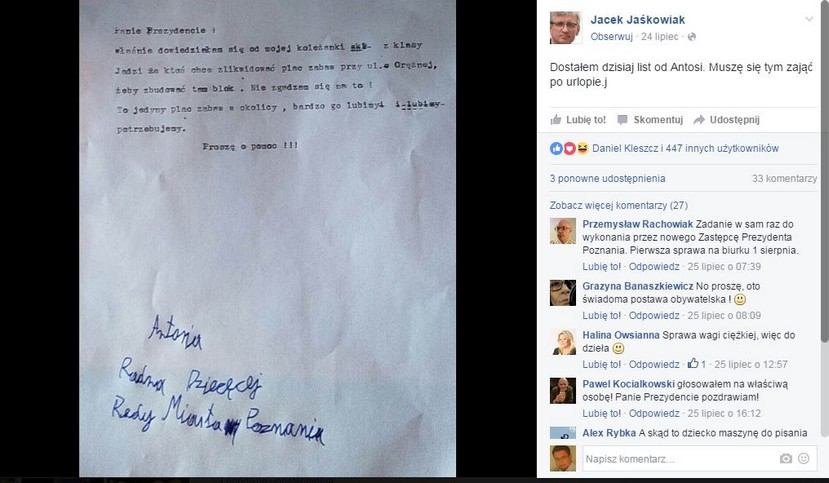 Panie Prezydencie !
właśnie dowiedziałam się od mojej koleżanki z klasy
Jadzi że ktoś chce zlikwidować plac zabaw przy ul. Orężnej,
żeby zbudować tam blok . Nie zgadzam się na to !
To jedyny plac zabaw w okolicy , bardzo go lubimyi i lubimy-
potrzebujemy.
Proszę o pomoc !!!
Antonia
Radna Dziecięcej
Rady Miasta Poznania
Jacek Jaśkowiak
Obserwuj · 24 lipiec ·
Dostałem dzisiaj list od Antosi. Muszę się tym zająć
po urlopie.j
Lubię to! Skomentuj Udostępnij
Daniel Kleszcz i 447 innych użytkowników
3 ponowne udostępnienia 33 komentarzy
Zobacz więcej komentarzy (27)
Przemysław Rachowiak Zadanie w sam raz do
wykonania przez nowego Zastępcę Prezydenta
Poznania. Pierwsza sprawa na biurku 1 sierpnia.
Lubię to! · Odpowiedz · 25 lipiec o 07:39
Grazyna Banaszkiewicz No proszę, oto
świadoma postawa obywatelska !
Lubię to! · Odpowiedz · 25 lipiec o 08:09
Halina Owsianna Sprawa wagi ciężkiej, więc do
dzieła
Lubię to! · Odpowiedz · 1 · 25 lipiec o 12:57
Pawel Kocialkowski głosowałem na właściwą
osobę! Panie Prezydencie pozdrawiam!
Lubię to! · Odpowiedz · 25 lipiec o 16:12
Alex Rybka A skąd to dziecko maszynę do pisania
Napisz komentarz...